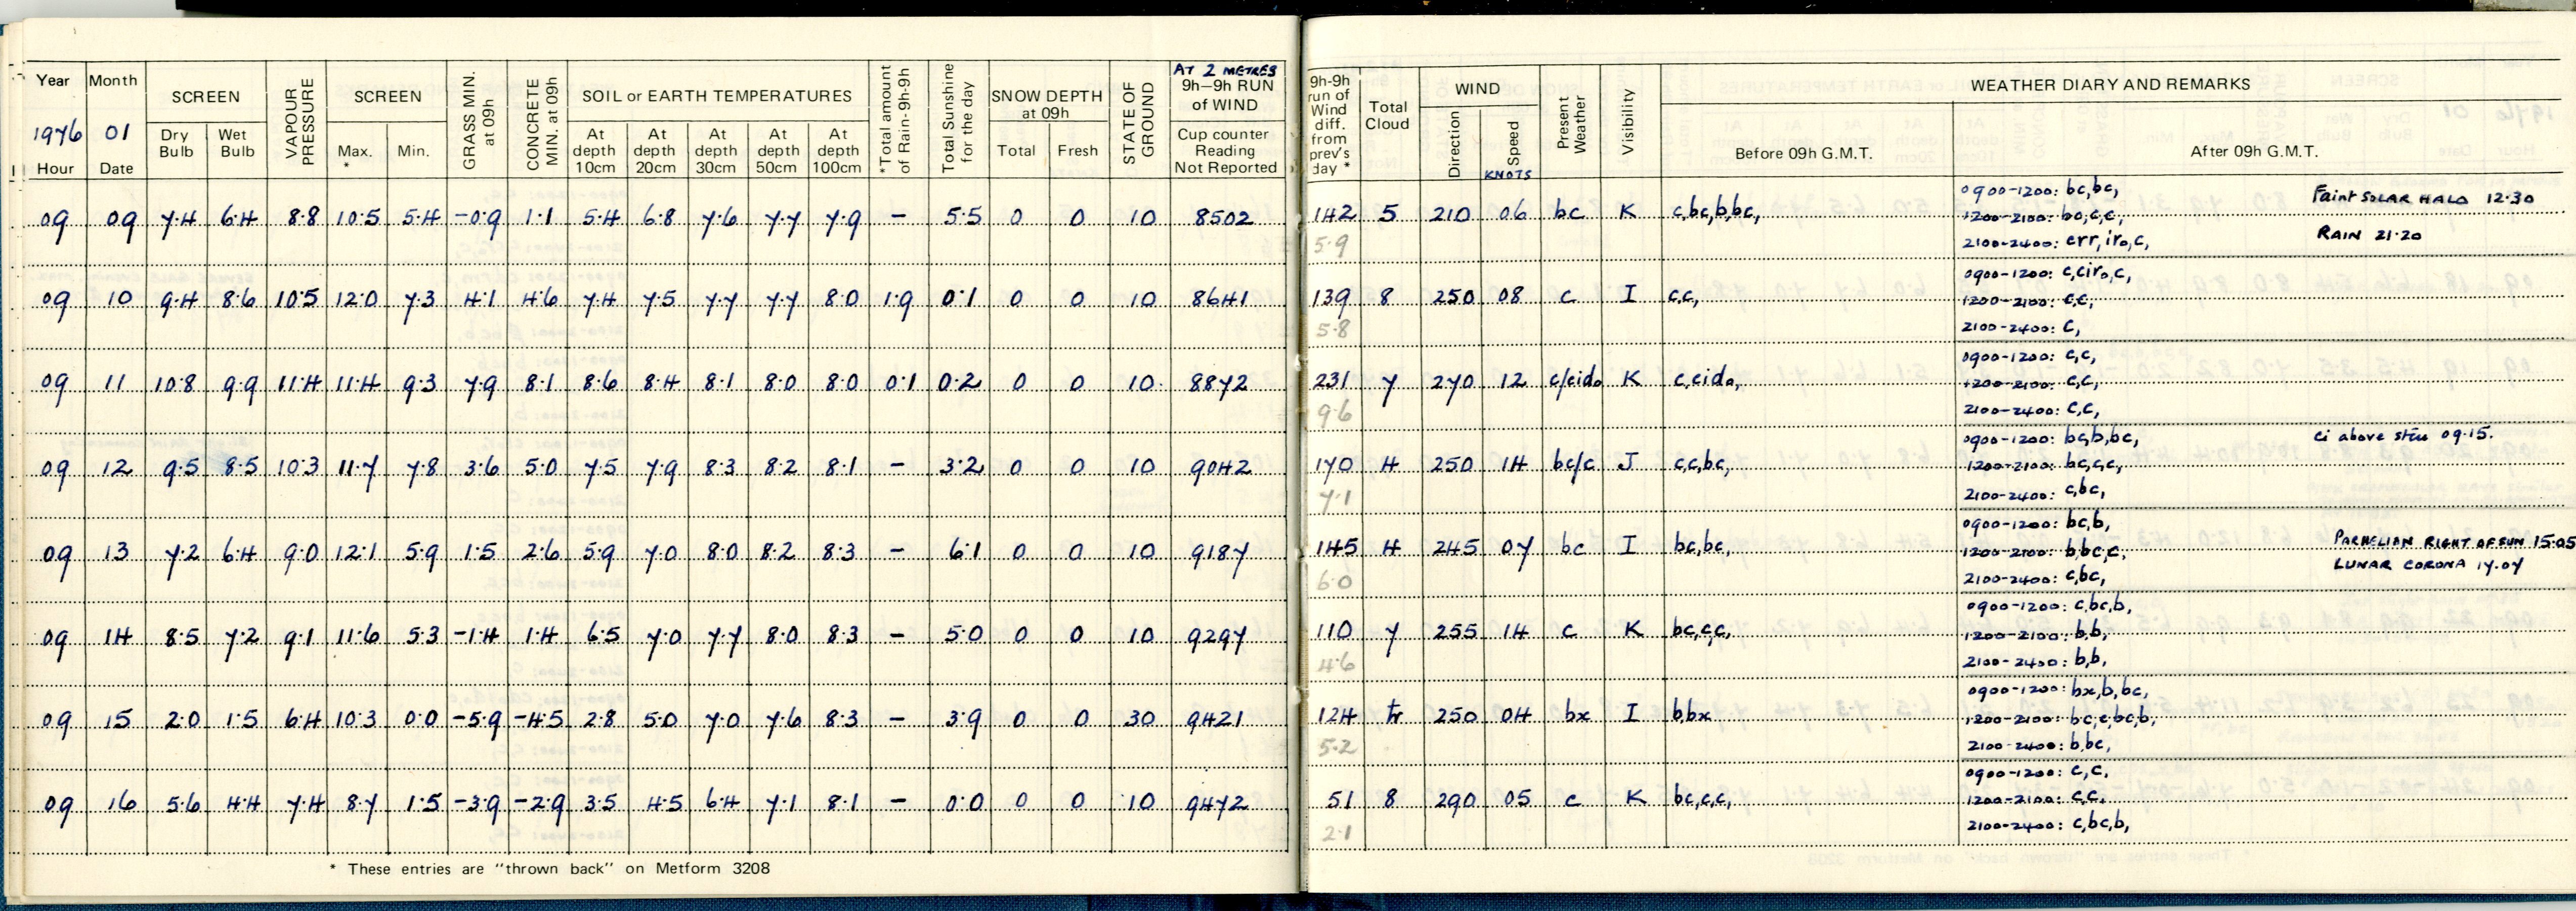 Year Month SCREEN VAPOUR PRESSURE SCREEN GRASS MIN. at 09h CONCRETE MIN. at 09h SOIL or EARTH TEMPERATURES *Total amount of Rain-9h-9h Total Sunshine for the day SNOW DEPTH at 09h STATE OF GROUND AT 2 METRES 9h–9h RUN of WIND
1976 01 Dry Bulb Wet Bulb Max. * Min. At depth 10cm At depth 20cm At depth 30cm At depth 50cm At depth 100cm Total Fresh Cup counter Reading Not Reported
Hour Date
09 09 7.4 6.4 8.8 10.5 5.4 -0.9 1.1 5.4 6.8 7.6 7.7 7.9 – 5.5 0 0 10 8502
09 10 9.4 8.6 10.5 12.0 7.3 4.1 4.6 7.4 7.5 7.7 7.7 8.0 1.9 0.1 0 0 10 8641
09 11 10.8 9.9 11.4 11.4 9.3 7.9 8.1 8.6 8.4 8.1 8.0 8.0 0.1 0.2 0 0 10 8872
09 12 9.5 8.5 10.3 11.7 7.8 3.6 5.0 7.5 7.9 8.3 8.2 8.1 – 3.2 0 0 10 9042
09 13 7.2 6.4 9.0 12.1 5.9 1.5 2.6 5.9 7.0 8.0 8.2 8.3 – 6.1 0 0 10 9187
09 14 8.5 7.2 9.1 11.6 5.3 -1.4 1.4 6.5 7.0 7.7 8.0 8.3 – 5.0 0 0 10 9297
09 15 2.0 1.5 6.4 10.3 0.0 -5.9 -4.5 2.8 5.0 7.0 7.6 8.3 – 3.9 0 0 30 9421
09 16 5.6 4.4 7.4 8.7 1.5 -3.9 -2.9 3.5 4.5 6.4 7.1 8.1 – 0.0 0 0 10 9472
* These entries are "thrown back" on Metform 3208
9h-9h run of Wind diff. from prev's day * Total Cloud WIND Direction Speed KNOTS Present Weather Visibility WEATHER DIARY AND REMARKS
Before 09h G.M.T. After 09h G.M.T.
0900-1200: bc,bc, Faint SOLAR HALO 12.30
142 5 210 06 bc K c,bc,b,bc, 1200-2100: bc,c,c,
5.9 2100-2400: crr,iro,c, RAIN 21.20
0900-1200: c,ciro,c,
139 8 250 08 c I c,c, 1200-2100: c,c,
5.8 2100-2400: c,
0900-1200: c,c,
231 7 270 12 c/cido K c,cido, 1200-2100: c,c,
9.6 2100-2400: c,c,
0900-1200: bc,b,bc, Ci above 09.15.
170 4 250 14 bc/c J c,c,bc, 1200-2100: bc,c,c,
7.1 2100-2400: c,bc,
0900-1200: bc,b,
145 4 245 07 bc I bc,bc, 1200-2100: b,bc,c, PARHELION RIGHT OF SUN 15.05
6.0 2100-2400: c,bc, LUNAR CORONA 17.07
0900-1200: c,bc,b,
110 7 255 14 c K bc,c,c, 1200-2100: b,b,
4.6 2100-2400: b,b,
0900-1200: bx,b,bc,
124 tr 250 04 bx I b,bx 1200-2100: bc,c,bc,b,
5.2 2100-2400: b,bc,
0900-1200: c,c,
51 8 290 05 c K bc,c,c, 1200-2100: c,c,
2.1 2100-2400: c,bc,b,